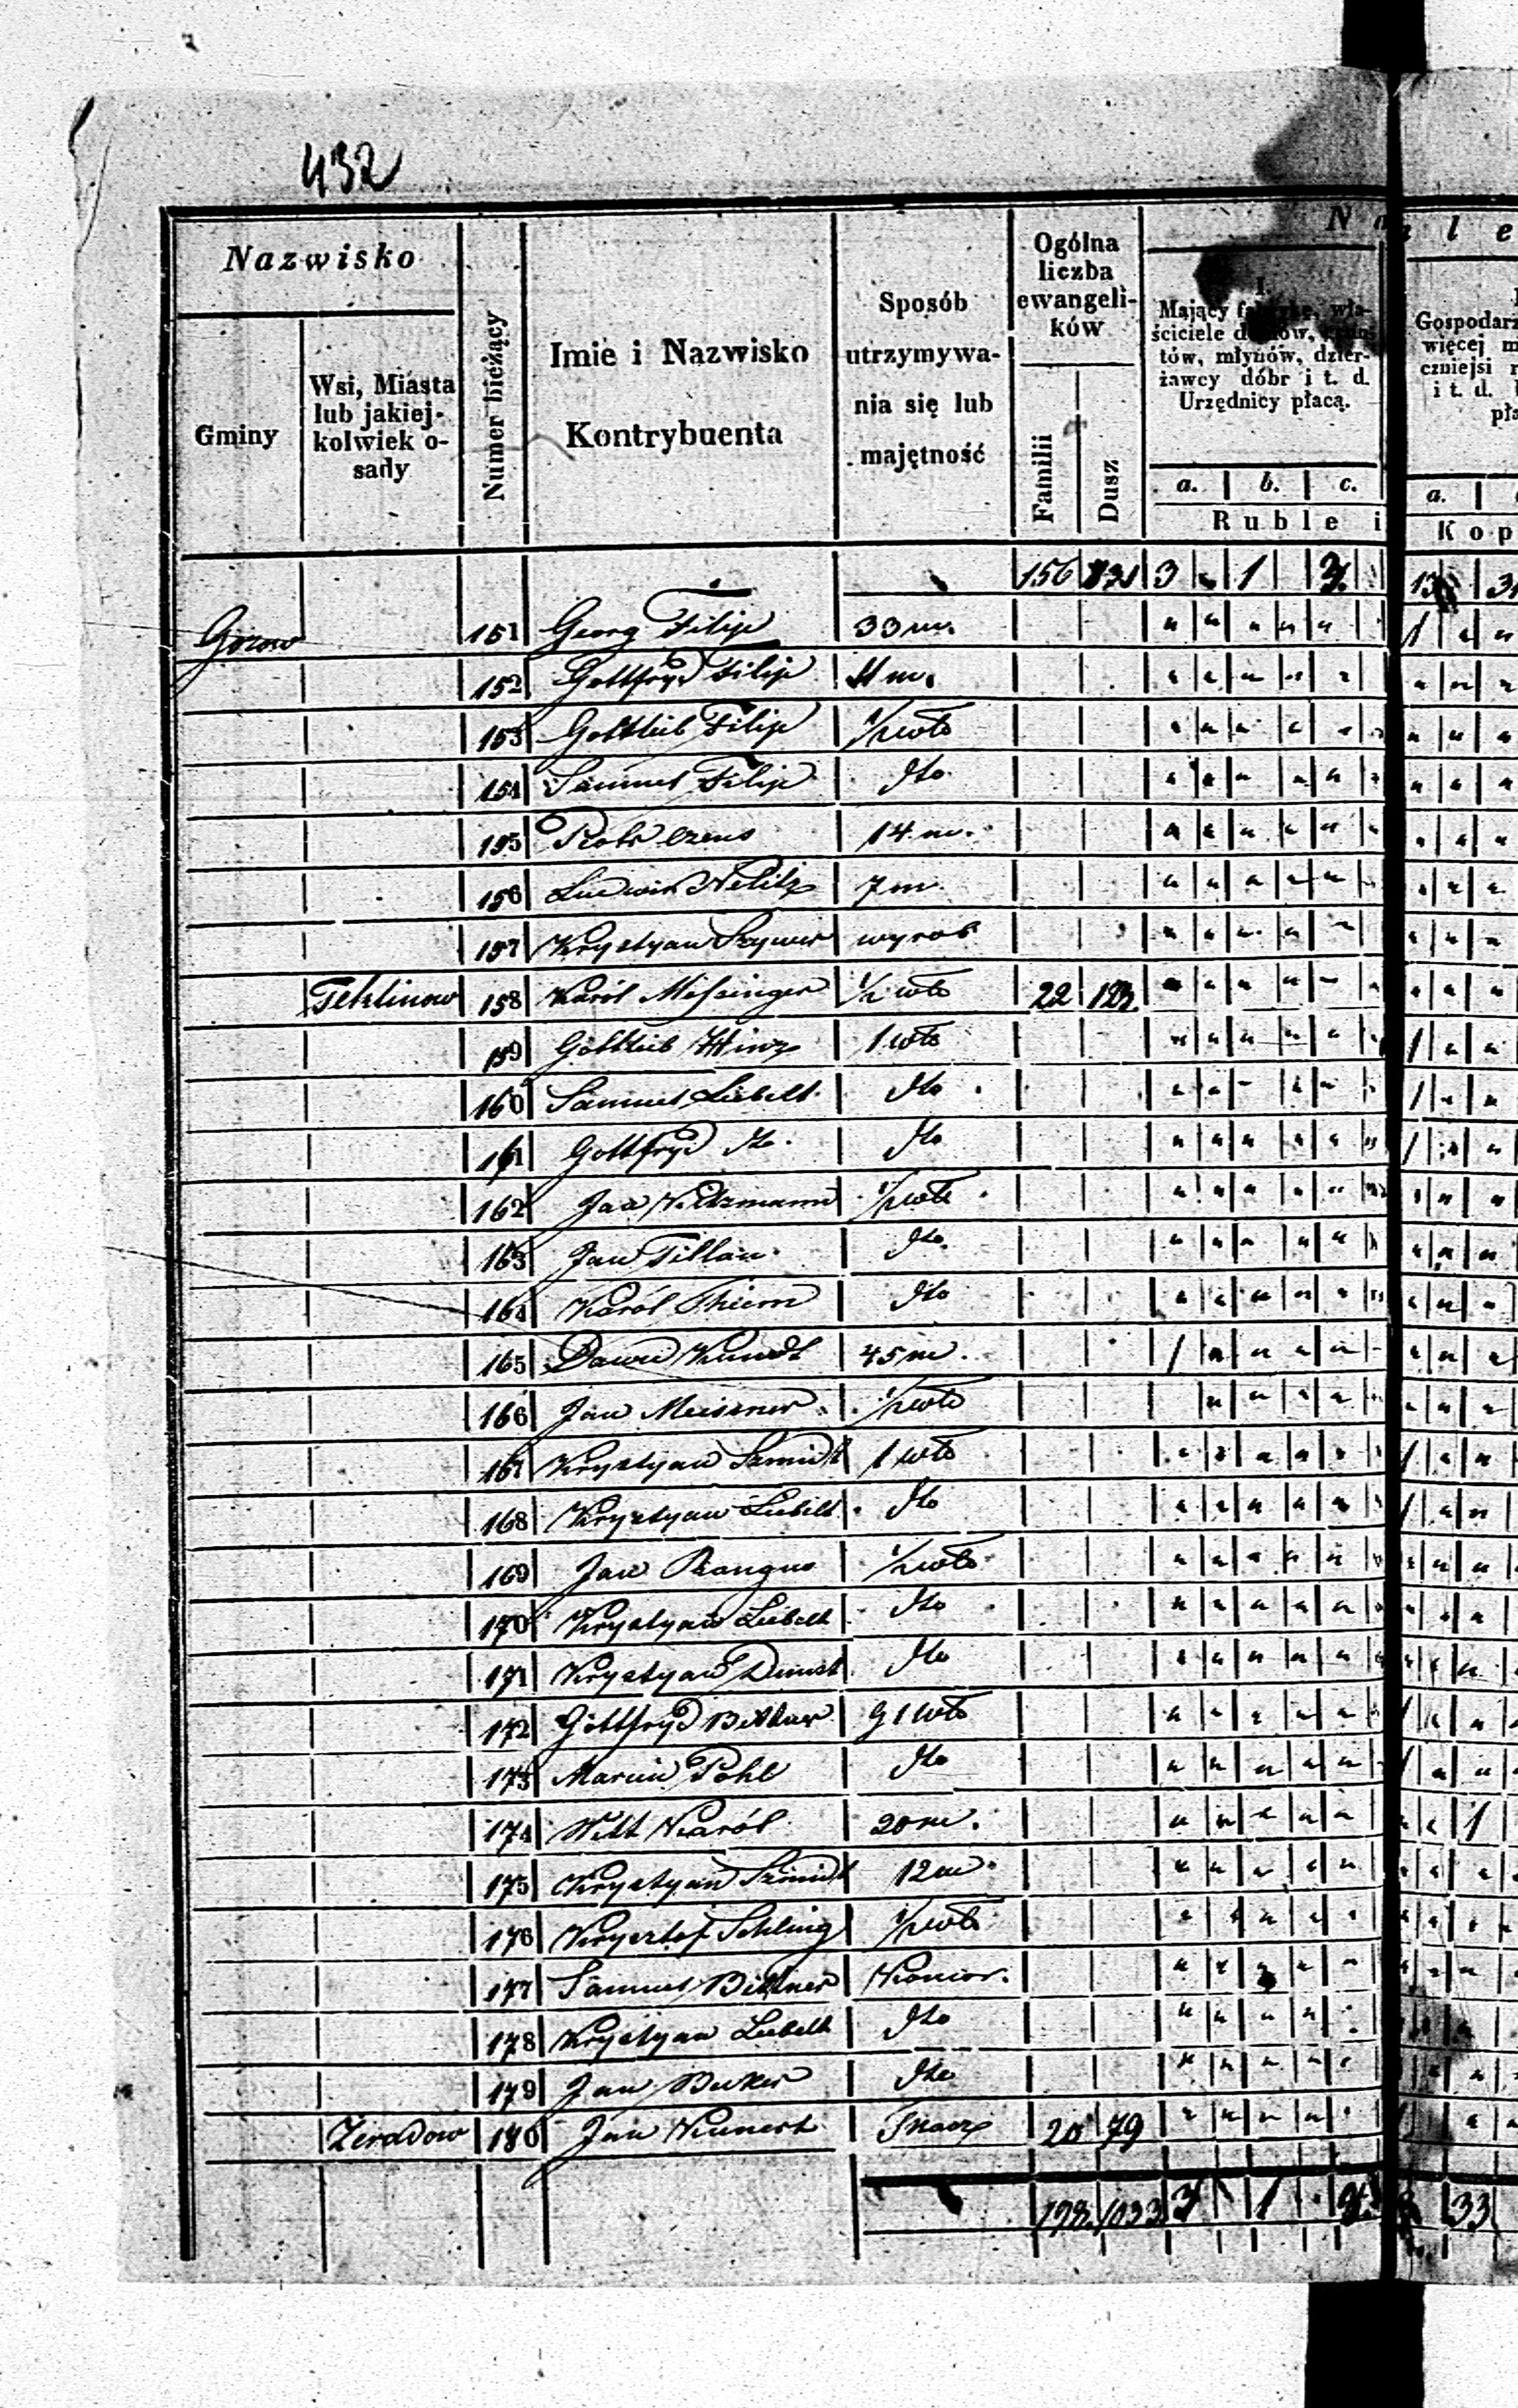 432
Nazwisko
Gminy
Wsi, Miasta
lub jakiej-
kolwiek o-
sady
Numer bieżący
Imie i Nazwisko
Kontrybuenta
Sposób
utrzymywa-
nia się lub
majętność
Ogólna
liczba
ewangeli-
ków
Familii
Dusz
N a l e
I.
Mający fabrykę, wła-
ściciele domów,
tów, młynów, dzier-
żawcy dóbr i t. d.
Urzędnicy płacą.
a. b. c.
Ruble i
Gospodarz
więcej m
czniejsi r
i t. d.
pła
a.
Kop
156 831 3 1 3 13
151 Georg Filip 33 m. 1
152 Gottfryd Filip 11 m.
153 Gottlieb Filip ½ wło
154 Samuel Filip dto
155 Piotr 14 m.
156 Ludwik Nelitz 7 m
157 Krystyan wyrob
Teklinow 158 Karól Messinger ½ wło 22 123
159 Gottlieb Hinz 1 wło 1
160 Samuel Liebelt dto 1
161 Gottfryd dto dto 1
162 Jan ½ wło
163 Jan Tillau dto
164 Karól Thiem dto
165 Dawid Kundt 45 m. 1
166 Jan Meissner ½ wło
167 Krystyan Szmidt 1 wło 1
168 Krystyan Liebelt dto 1
169 Jan ½ wło
170 Krystyan Liebelt dto
171 Krystyan dto
172 Gottfryd 1 wło 1
173 Marcin Pohl dto 1
174 Witt Karól 20 m. 1
175 Krystyan Szmidt 12 m
176 Krysztof Schling ½ wło
177 Samuel Bittner Komor.
178 Krystyan Liebelt dto
179 Jan Beker dto
180 Jan Kunert Tkacz 20 79
198 1033 3 1 33